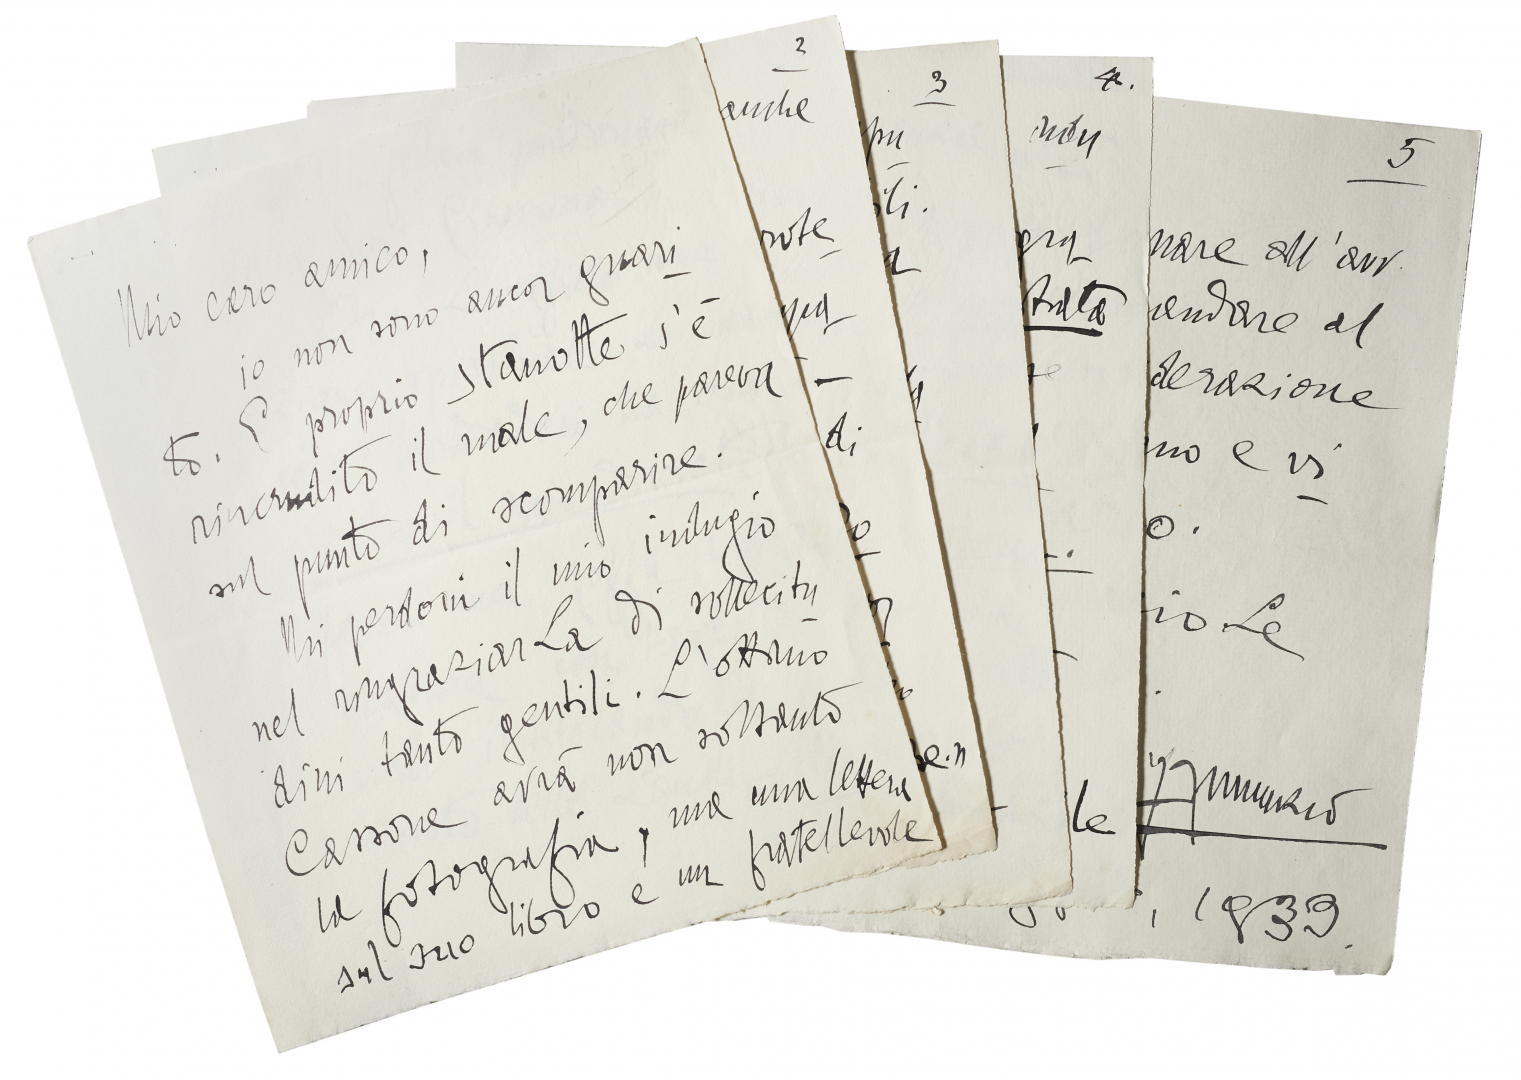 Mio caro amico,
io non sono ancor guari
to. E proprio stanotte s'è
rincrudito il male, che pareva
sul punto di scomparire.
Mi perdoni il mio indugio
nel ringraziarLa di sollecitu
dini tanto gentili. L'ottimo
Cassone avrà non soltanto
la fotografia, ma una lettera
sul suo libro e un fratellevole
2
anche
note
qua
di
3
pu
ili.
4.
non
gra
trata
le
5
nare all'avv.
andare al
derazione
mo e vi
o.
io Le
nnunzio
1933.